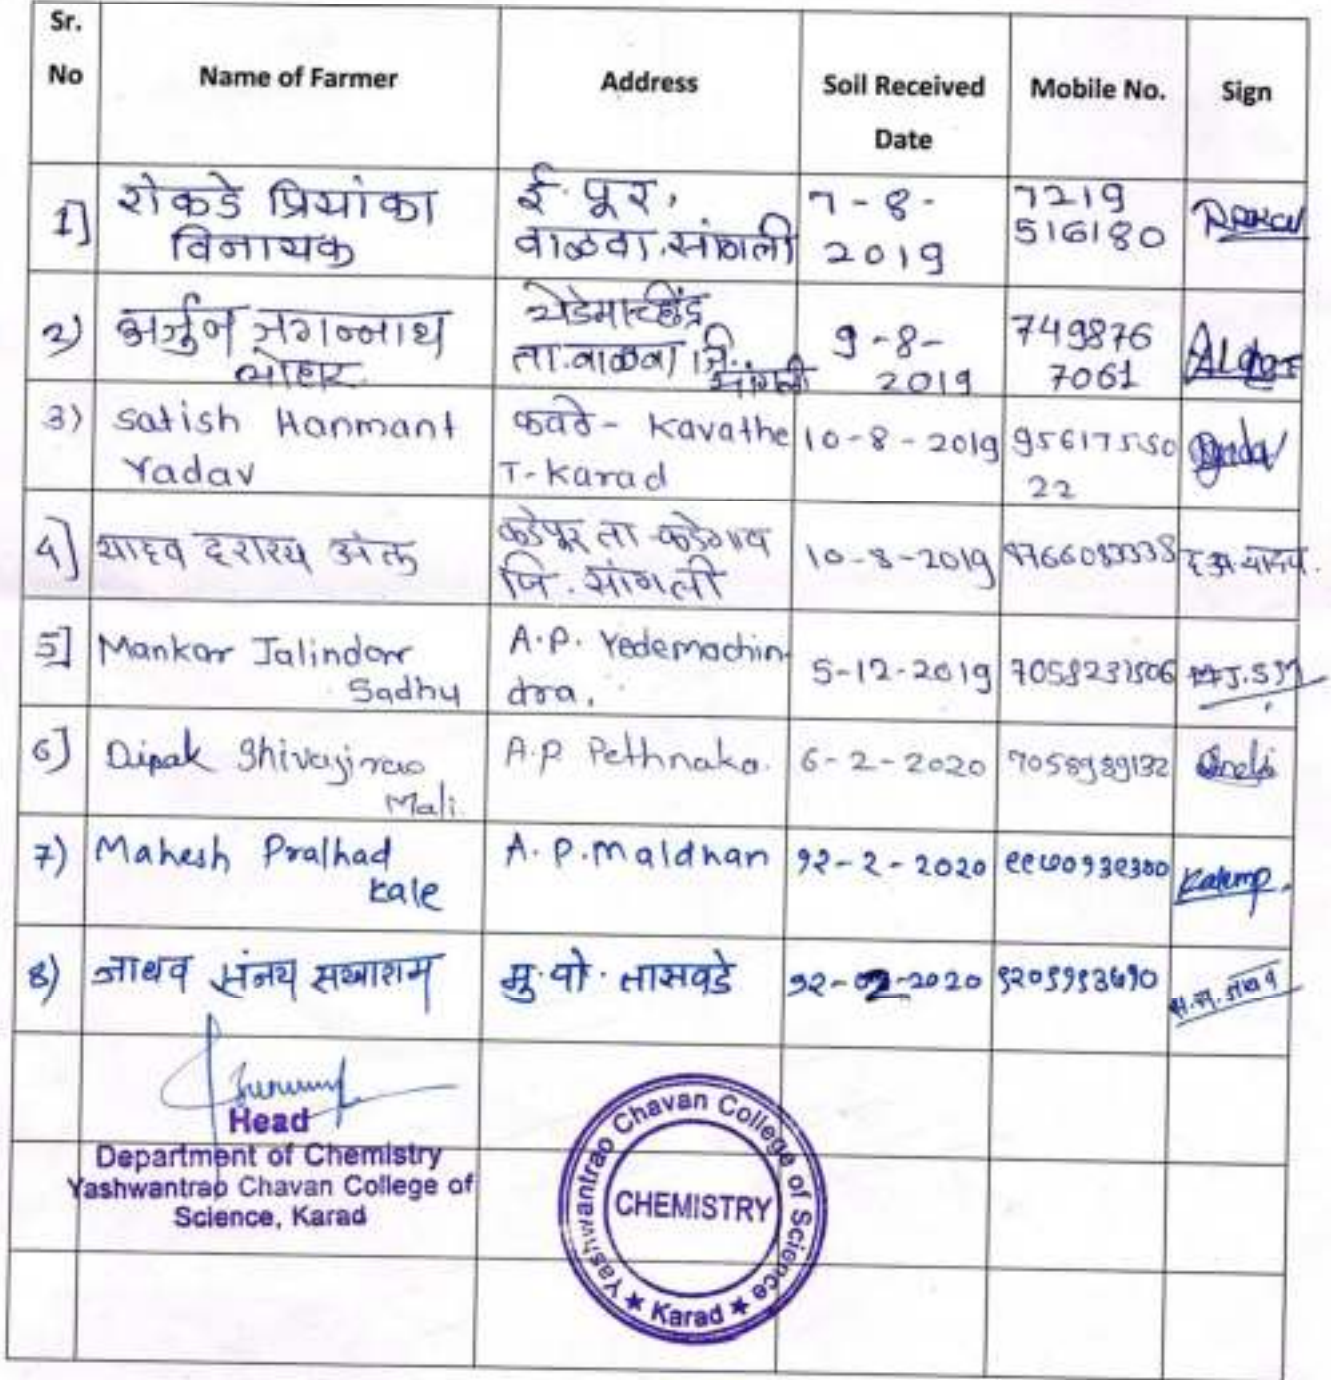 Sr. No Name of Farmer Address Soil Received Date Mobile No. Sign
1] शेकडे प्रियांका विनायक ई. पूर, वाळवा, सांगली 7-8-2019 7219 516180
2) अर्जुन जगन्नाथ लोहार येडेमच्छिंद्र ता.वाळवा जि. सांगली 9-8-2019 749876 7061
3) Satish Hanmant Yadav कवठे- Kavathe T-Karad 10-8-2019 95617550 22
4] यादव कडेपूर ता-कडेगाव जि. सांगली 10-8-2019
5] Mankar Jalindar Sadhu A.P. Yedemachindra. 5-12-2019 J.S.M
6] Dipak Shivajirao Mali. A.P Pethnaka. 6-2-2020 7058989132
7) Mahesh Pralhad Kale A.P. Maldhan १२-2-2020 Kalemp.
8) जाधव संजय सखाराम मु.पो. तासवडे १२-02-2020
Head
Department of Chemistry
Yashwantrao Chavan College of
Science, Karad
Yashwantrao Chavan College of Science
CHEMISTRY
★ Karad ★